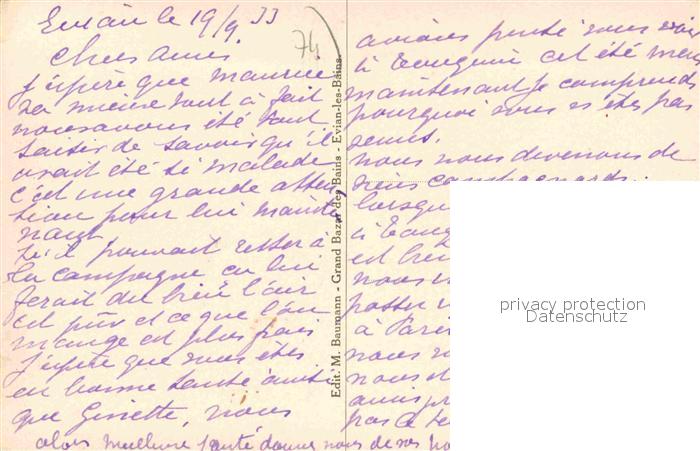 Evian le 19/9 33
74
Chers amis
J'espère que Maurice
va mieux tout à fait
nous avons été tout
saisis de savoir qu'il
avait été si malade
c'est une grande atten
tion pour lui mainte
nant
s'il pouvait rester à
la campagne ça lui
ferait du bien l'air
est pur et ce que l'on
mange est plus frais
J'espère que vous êtes
en bonne santé ainsi
que Ginette, nous
alors meilleure santé donnez nous de vos
Edit. M. Baumann - Grand Bazar des Bains - Evian-les-Bains.
avions pensé vous voir
à cet été mais
maintenant je comprends
pourquoi vous n'êtes pas
venus.
Nous nous devenons de
vrais campagnards..
lorsqu
à
est bien
nous
passer
à Paris
nous
nous
amis
pas
privacy protection
Datenschutz